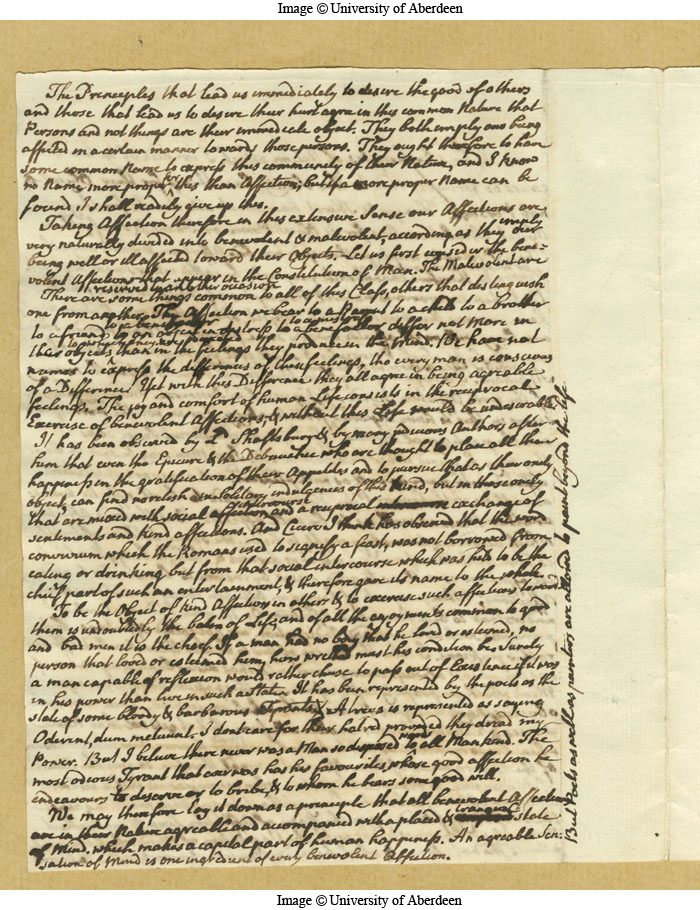 Image © University of Aberdeen
The Principles that lead us immediately to desire the good of others
and those that lead us to desire their hurt agree in this common Nature that
Persons and not things are their immediate object. They both imply our being
affected in a certain manner towards those persons. They ought therefore to have
some common Name to express this community of their Nature, and I know
no Name more proper for this than Affection; but if a more proper Name can be
found I shall readily give up this.
Taking Affection therefore in this extensive Sense our Affections are
very naturally divided into benevolent & malevolent, according as they imply our
being well or ill affected toward their Objects. Let us first consider the bene-
volent Affections that appear in the Constitution of Man. The Malevolent are
reserved to another occasion
There are some things common to all of this Class, others that distinguish
one from another. The Affection we bear to a Parent to a child to a brother
to a friend, to an object in distress to a benefactor differ not more in
their objects than in the feelings they produce in the Mind. We have not
names to express the differences of these feelings, tho every man is conscious
of a Difference. Yet with this Difference they all agree in being agreable
feelings. The joy and comfort of human Life consists in the reciprocal
Exercise of benevolent Affections, & without this Life would be undesirable.
It has been observed by L Shaftsbury & by many judicious Authors after
him that even the Epicure & the Debauchee who are thought to place all their
happiness in the gratification of their Appetites and to pursue that as their only
object, can find no relish in solitary indulgences of this kind, but in those only
that are mixed with social intercourse and a reciprocal exchange of
sentiments and kind affections. And Cicero I think has observed that the word
convivium which the Romans used to signify a feast, was not borrowed from
eating or drinking but from that social intercourse which was held to be the
chief part of such an entertainment, & therefore gave its name to the whole
To be the Object of kind Affection in others & to exercise such affections toward
them is undoubtedly the balm of Life, and of all the enjoyments common to good
and bad men it is the chief. If a man had no body that he loved or esteemed, no
person that loved or esteemed him, how wretched must his condition be. Surely
a man capable of reflexion would rather chuse to pass out of Existence if it was
in his power than live in such a state. It has been represented by the poets as the
state of some bloody & barbarous Tyrants. Atreus is represented as saying
Oderint, dum metuant. I dont care for their hatred provided they dread my
Power. But I believe there never was a Man so disposed towards all Mankind. The
most odious Tyrant that ever was has his favourites whose good affection he
endeavours to deserve or to bribe, & to whom he bears some good will.
We may therefore lay it down as a principle that all benevolent Affections
are in their Nature agreable and accompanied with a placid & tranquil state
of Mind. which makes a capital part of human happiness. An agreable Sen:
sation of Mind is one ingredient of every benevolent Affection.
But Poets as well as painters are allowed to paint beyond the life
Image © University of Aberdeen